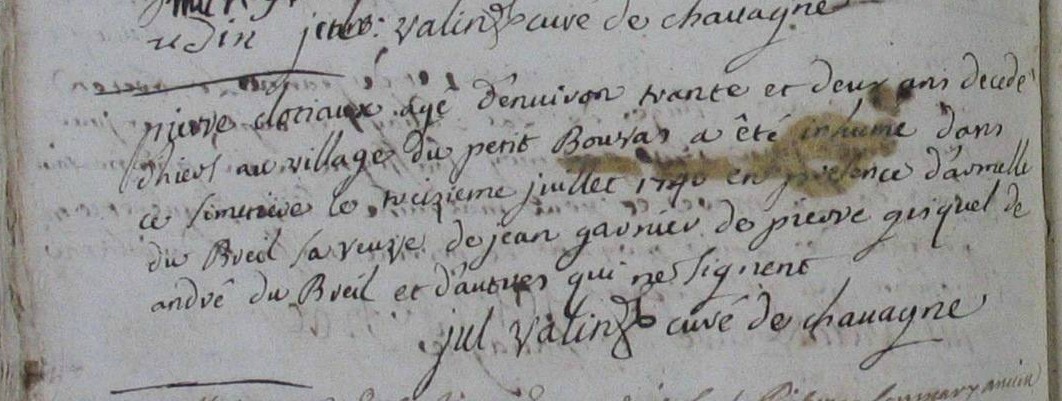 jul: valinz curé de chauagne
pierre doriaux agé d'enuiron trante et deux ans decedé
d'hier au village du petit Bouxar a êté inhumé dans
ce simetiere le treizieme juillet 1740 en presence d'armelle
du Breil sa veuve de jean garnier de pierre guiquel de
andré du Breil et d'autres qui ne signent
jul valinz curé de chauagne